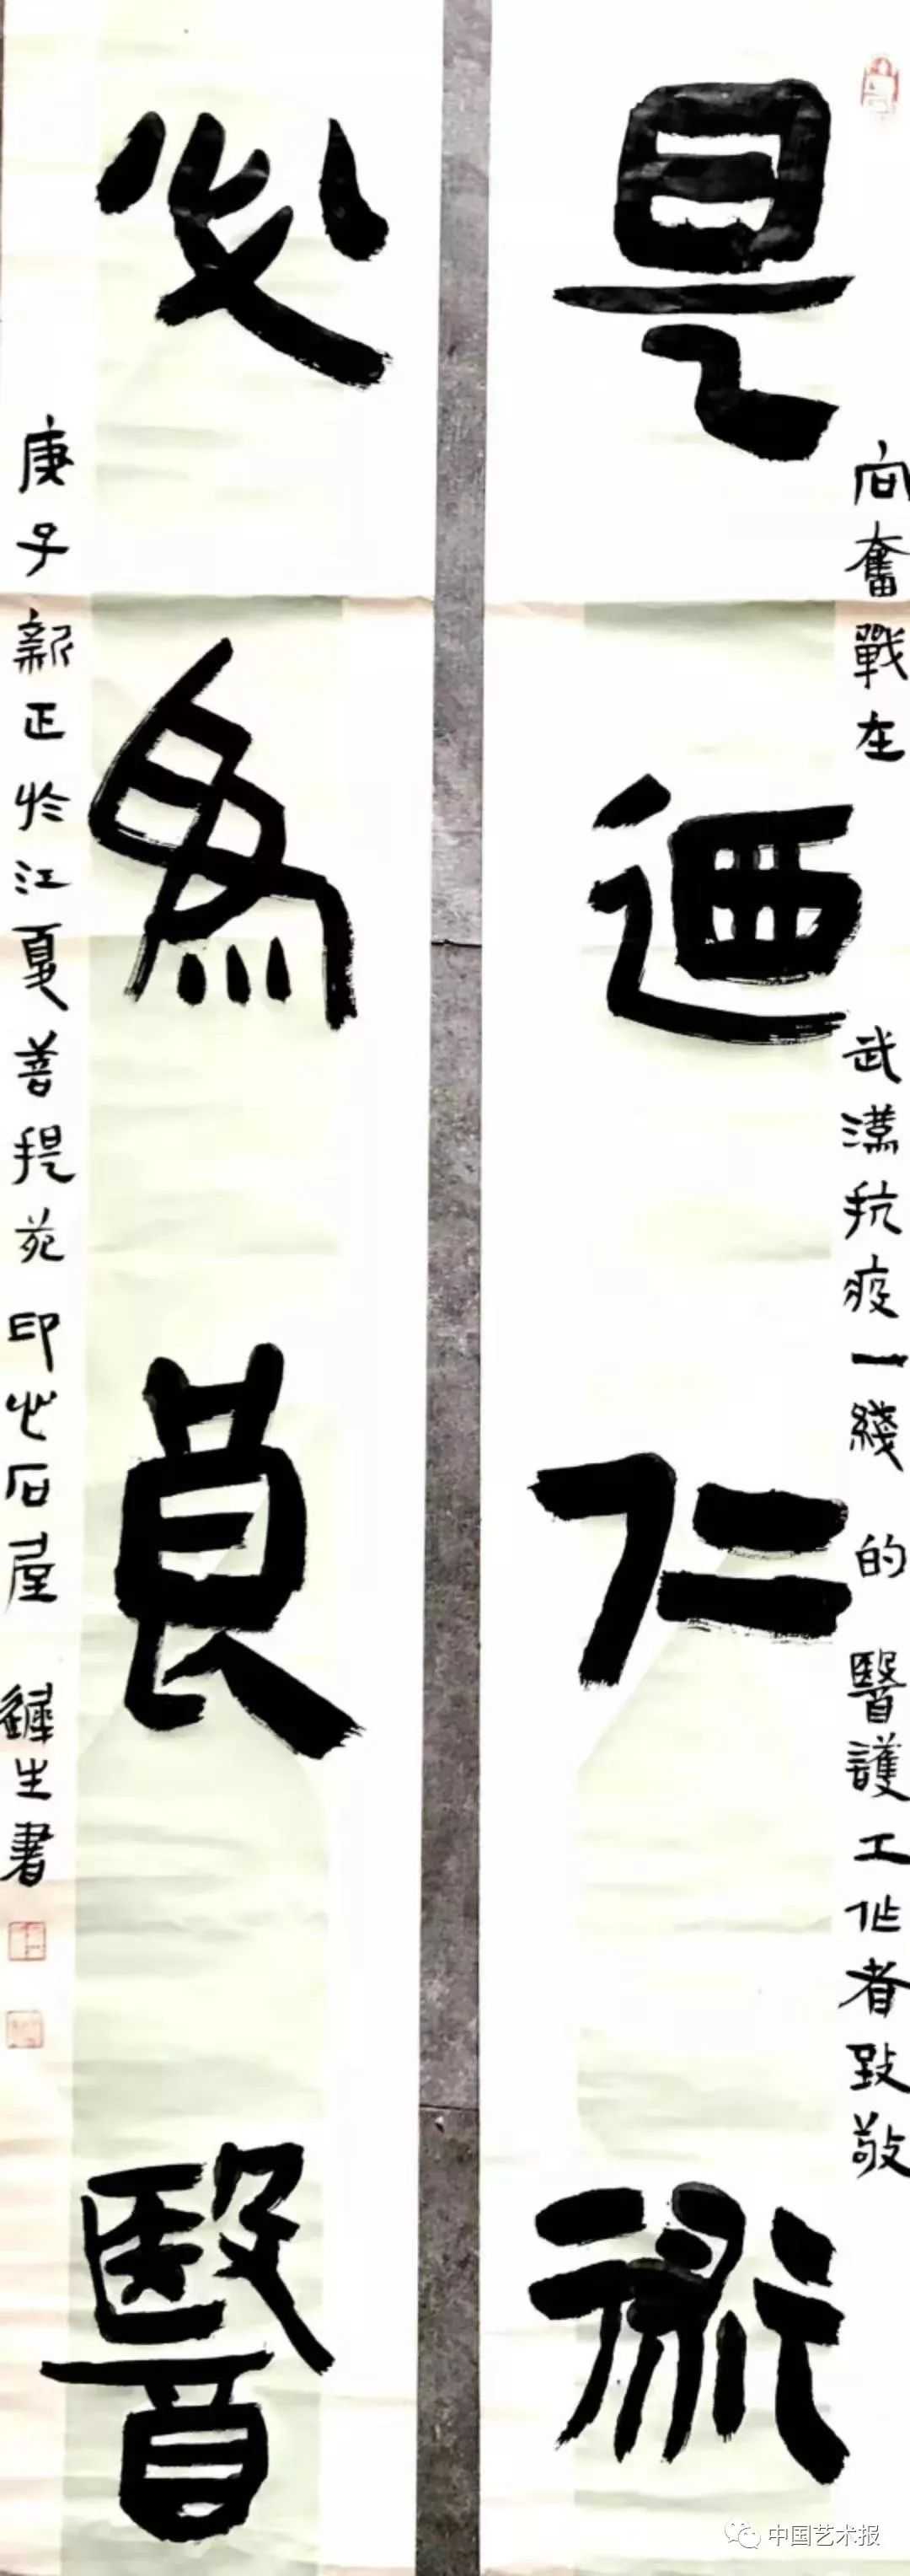 向奮戰在武漢抗疫一綫的醫護工作者致敬
是迺仁術
必為良醫
庚子新正於江夏菩提苑印心石屋
生書
中国艺术报